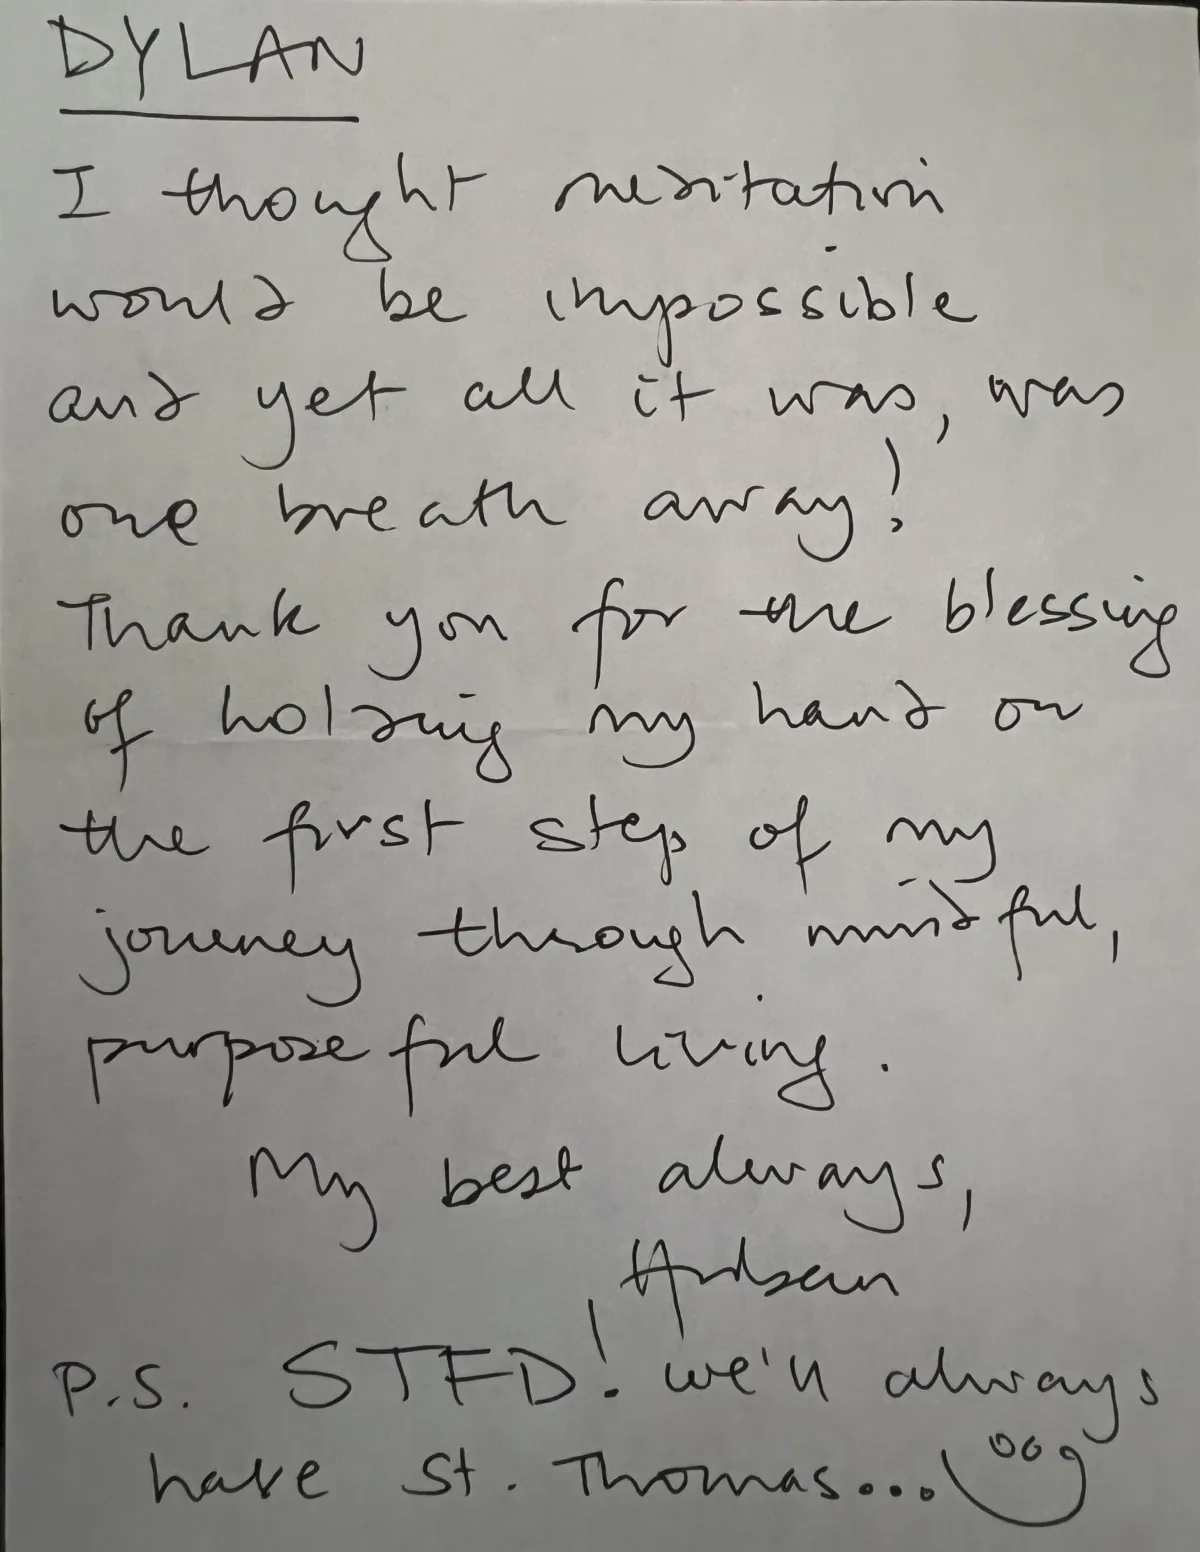 DYLAN
I thought meditation
would be impossible
and yet all it was, was
one breath away!
Thank you for the blessing
of holding my hand on
the first step of my
journey through mindful,
purposeful living.
My best always,
P.S. STFD! we'll always
have St. Thomas...